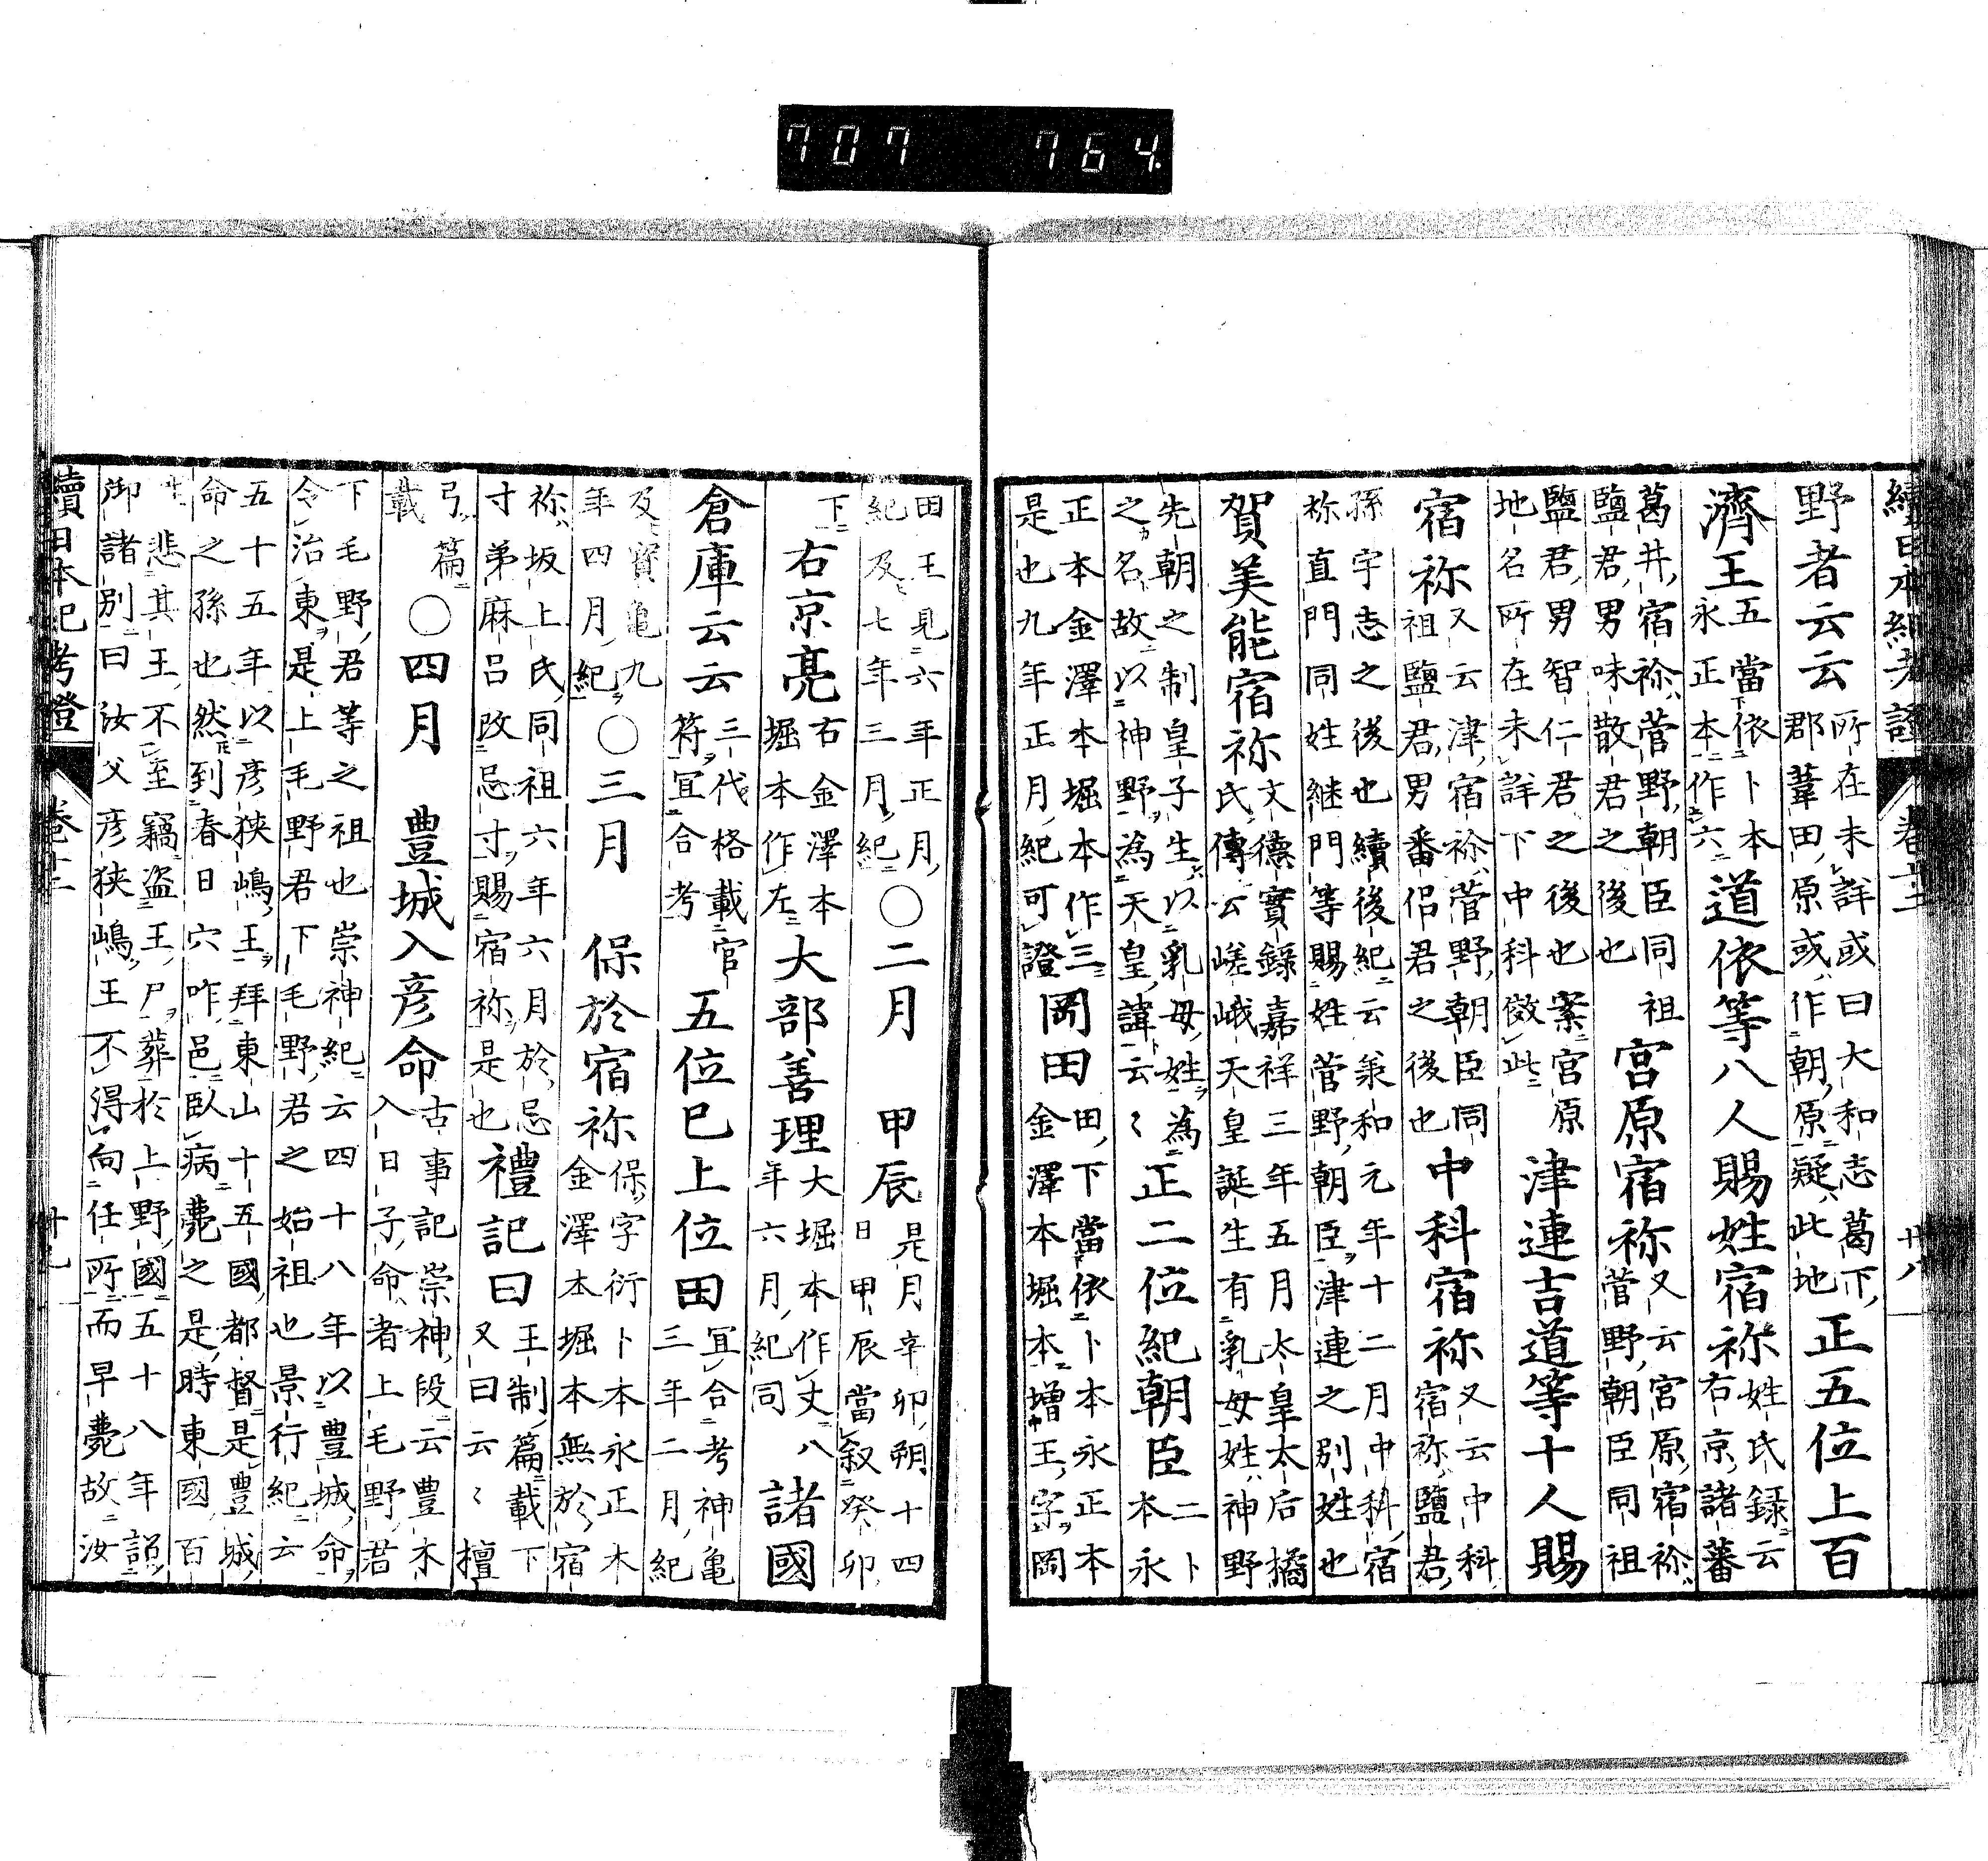 707 764
續日本紀考證 卷十二 廿八
野者云云 所在未詳或曰大和志葛下
郡葦田原或作朝原疑此地 正五位上百
濟王 五當依卜本
永正本作六 道依等八人賜姓宿祢 姓氏録云
右京諸蕃
葛井宿祢菅野朝臣同祖
鹽君男味散君之後也 宮原宿祢 又云宮原宿祢
菅野朝臣同祖
鹽君男智仁君之後也案宮原
地名所在未詳下中科倣此 津連吉道等十人賜
宿祢 又云津宿祢菅野朝臣同
祖鹽君男番侶君之後也 中科宿祢 又云中科
宿祢鹽君
孫宇志之後也續後紀云承和元年十二月中科宿
祢直門同姓継門等賜姓菅野朝臣津連之別姓也
賀美能宿祢 文德實錄嘉祥三年五月太皇太后橘
氏傳云嵯峨天皇誕生有乳母姓神野
先朝之制皇子生以乳母姓為
之名故以神野為天皇諱云〻 正二位紀朝臣 二卜
本永
正本金澤本堀本作三
是也九年正月紀可證 岡田 田下當依卜本永正本
金澤本堀本增王字岡
田王見六年正月
紀及七年三月紀 〇二月 甲辰 是月辛卯朔十四
日甲辰當叙癸卯
下 右京亮 右金澤本
堀本作左 大部善理 大堀本作丈八
年六月紀同 諸國
倉庫云云 三代格載官
符冝合考 五位已上位田 冝合考神亀
三年二月紀
及寶亀九
年四月紀 〇三月 保於宿祢 保字衍卜本永正本
金澤本堀本無於宿
祢坂上氏同祖六年六月於忌
寸弟麻呂改忌寸賜宿祢是也 禮記曰 王制篇載下
又曰云〻檀
弓篇
載 〇四月 豊城入彦命 古事記崇神段云豊木
入日子命者上毛野君
下毛野君等之祖也崇神紀云四十八年以豊城命
令治東是上毛野君下毛野君之始祖也景行紀云
五十五年以彦狹嶋王拜東山十五國都督是豊城
命之孫也然到春日穴咋邑臥病薨之是時東國百
姓悲其王不至竊盗王尸葬於上野國五十八年詔
御諸別曰汝父彦狹嶋王不得向任所而早薨故汝
續日本紀考證 卷十二 廿九